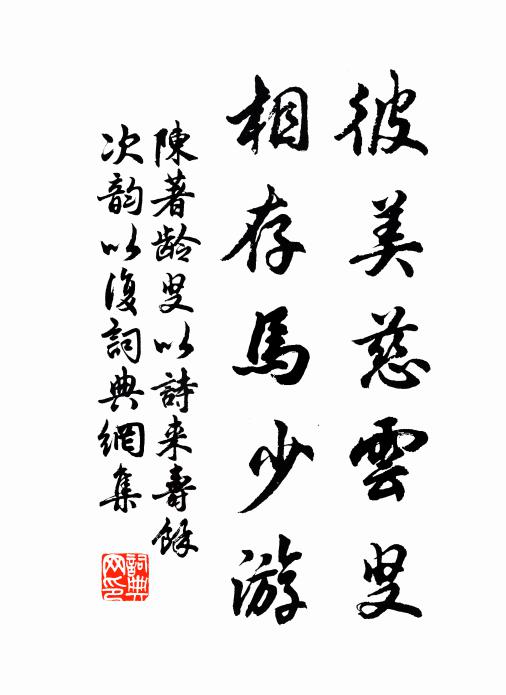 彼美慈雲叟
相存馬少游
陳著齡叟以詩来壽餘
次韵以復詞典網集
詞典网印